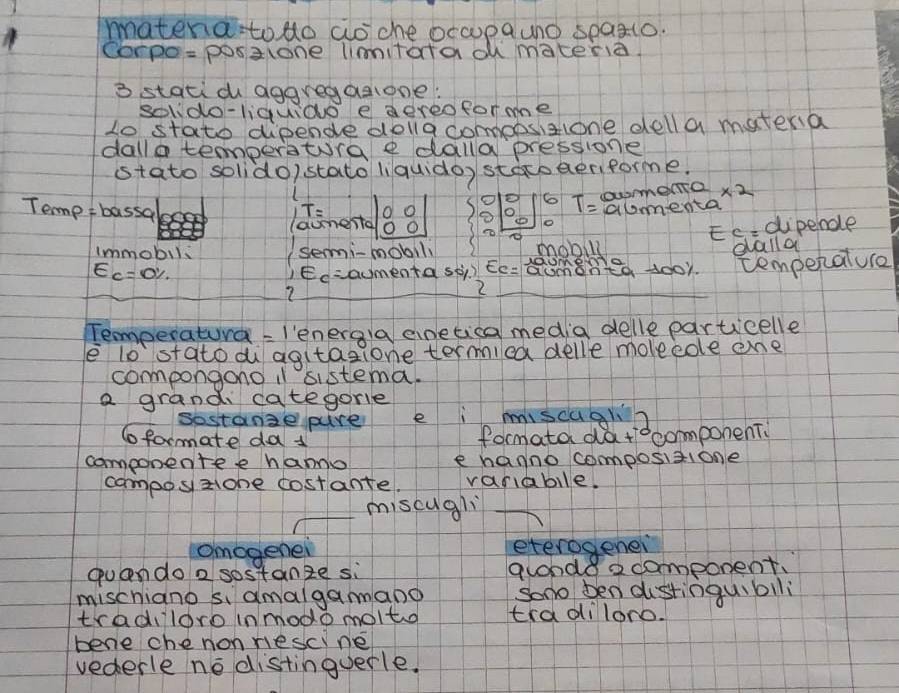 materia = tutto ciò che occupa uno spazio.
Corpo = porzione limitata di materia.
3 stati di aggregazione:
solido-liquido e aereoforme
lo stato dipende dalla composizione della materia
dalla temperatura e dalla pressione
stato solido, stato liquido, stato aeriforme.
Temp = bassa
immobili
Ec = 0%
T = aumenta
semi-mobili
Ec = aumenta 50%
T = aumenta x2
aumenta
mobili
Ec = aumenta 100%
Ec = dipende
dalla
temperatura
Temperatura = l'energia cinetica media delle particelle
è lo stato di agitazione termica delle molecole che
compongono il sistema.
2 grandi categorie
sostanze pure e i miscugli
formate da 1
componente e hanno
composizione costante.
formata da + componenti
e hanno composizione
variabile.
miscugli
omogenei
quando 2 sostanze si
mischiano si amalgamano
tra di loro in modo molto
bene che non riesci né
vederle né distinguerle.
eterogenei
quando 2 componenti
sono ben distinguibili
tra di loro.